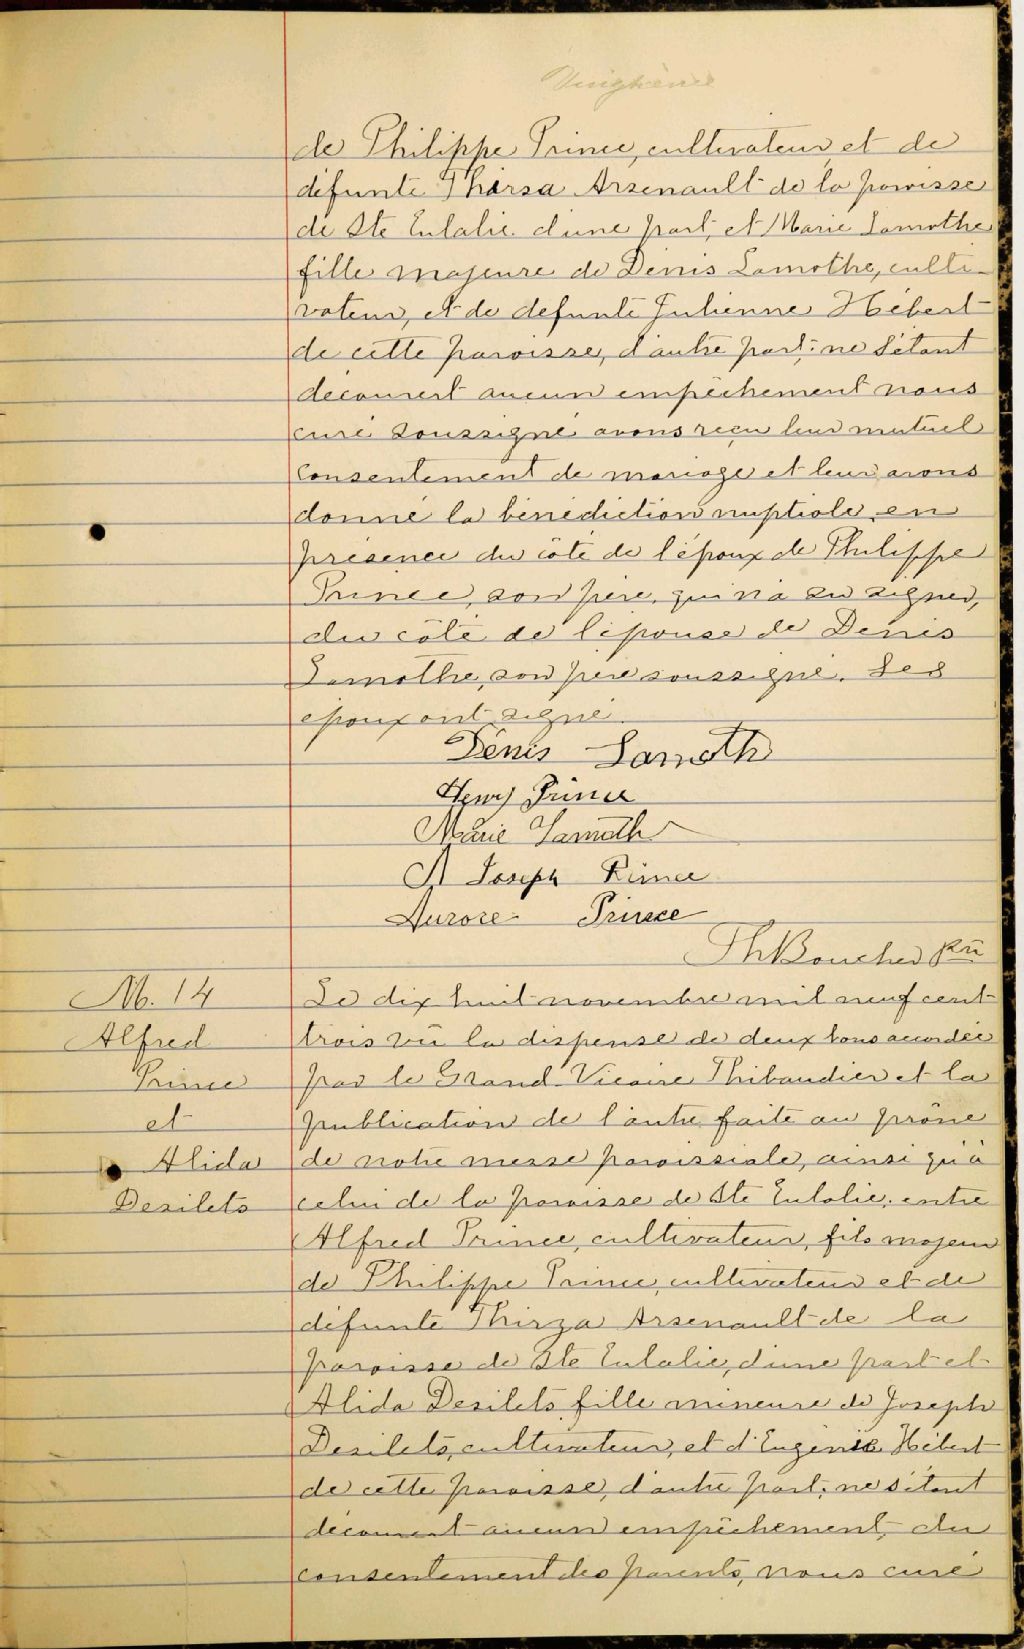 Vingtième
de Philippe Prince, cultivateur, et de
défunte Thirsa Arsenault de la paroisse
de Ste Eulalie d'une part, et Marie Lamothe
fille majeure de Denis Lamothe, culti-
vateur, et de défunte Julienne Hébert
de cette paroisse, d'autre part; ne s'étant
découvert aucun empêchement nous
curé soussigné avons reçu leur mutuel
consentement de mariage et leur avons
donné la bénédiction nuptiale en
présence du côté de l'époux de Philippe
Prince, son père, qui n'a su signer,
du côté de l'épouse de Denis
Lamothe, son père soussigné. Les
époux ont signé.
Denis Lamoth
Henry Prince
Marie Lamoth
A Joseph Prince
Aurore Prince
Th Boucher Ptre
M. 14
Alfred
Prince
et
Alida
Desilets
Le dix huit novembre mil neuf cent
trois vu la dispense de deux bans accordée
par le Grand-Vicaire Thibaudier et la
publication de l'autre faite au prône
de notre messe paroissiale, ainsi qu'à
celui de la paroisse de Ste Eulalie, entre
Alfred Prince, cultivateur, fils majeur
de Philippe Prince, cultivateur et de
défunte Thirza Arsenault de la
paroisse de Ste Eulalie, d'une part et
Alida Desilets, fille mineure de Joseph
Desilets, cultivateur, et d'Eugénie Hébert
de cette paroisse, d'autre part; ne s'étant
découvert aucun empêchement, du
consentement des parents, nous curé